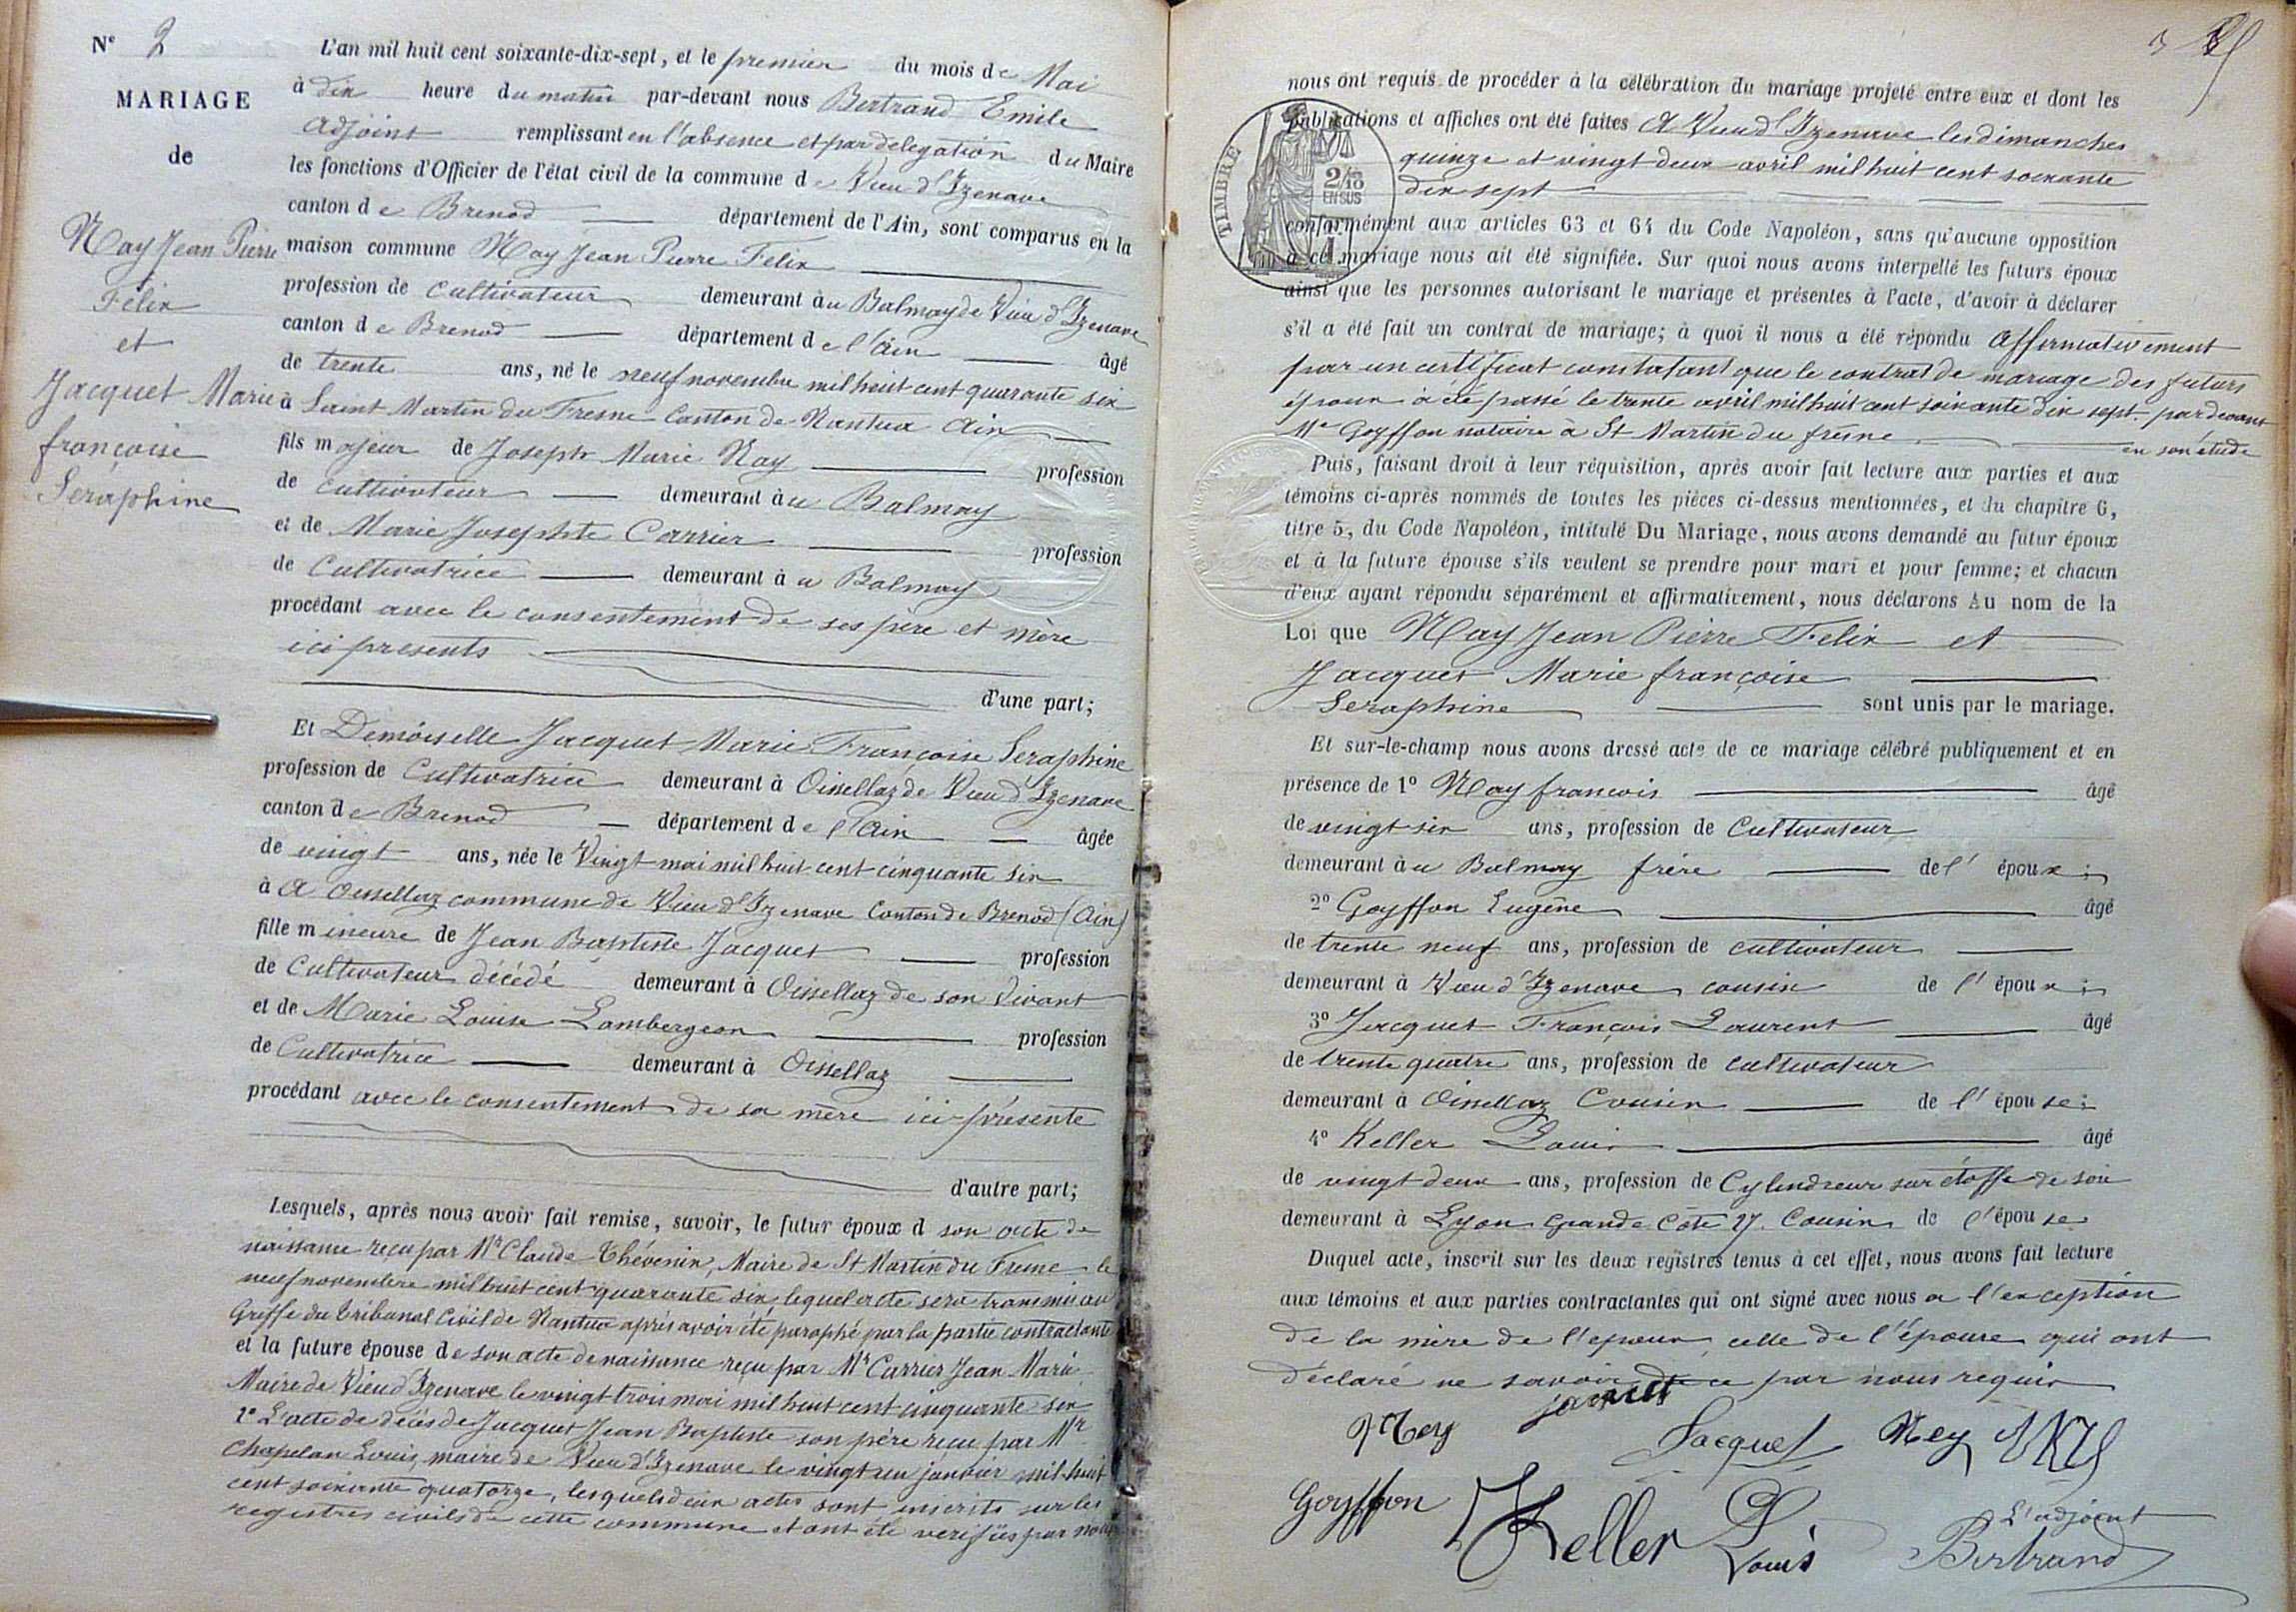 Nº 2
MARIAGE
de
Nay Jean Pierre
Félix
et
Jacquet Marie
françoise
Seraphine
L'an mil huit cent soixante-dix-sept, et le premier du mois de Mai
à dix heure du matin par-devant nous Bertrand Emile
Adjoint remplissant en l'absence et par délégation du Maire
les fonctions d'Officier de l'état civil de la commune de Vieu d'Izenave
canton de Brenod département de l'Ain, sont comparus en la
maison commune Nay Jean Pierre Felix
profession de Cultivateur demeurant àu Balmay de Vieu d'Izenave
canton de Brenod département de l'Ain âgé
de trente ans, né le neuf novembre mil huit cent quarante six
à Saint Martin du Fresne Canton de Nantua Ain
fils majeur de Joseph Marie Nay profession
de cultivateur demeurant àu Balmay
et de Marie Josephte Carrier profession
de Cultivatrice demeurant à u Balmay
procédant avec le consentement de ses père et mère
ici presents
d'une part;
Et Demoiselle Jacquet Marie Françoise Seraphine
profession de Cultivatrice demeurant à Oissellaz de Vieu d'Izenave
canton de Brenod département de l'Ain âgée
de vingt ans, née le Vingt mai mil huit cent cinquante six
à A Oissellaz commune de Vieu d'Izenave Canton de Brenod (Ain)
fille mineure de Jean Baptiste Jacquet profession
de Cultivateur décédé demeurant à Oissellaz de son Vivant
et de Marie Louise Lombergeon profession
de Cultivatrice demeurant à Oissellaz
procédant avec le consentement de sa mère ici présente
d'autre part;
Lesquels, après nous avoir fait remise, savoir, le futur époux d son acte de
naissance reçu par Mr Claude Thévenin, Maire de St Martin du Fresne le
neuf novembre mil huit cent quarante six, lequel acte sera transmis au
Greffe du tribunal Civil de Nantua après avoir été paraphé par la partie contractante
et la future épouse de son acte de naissance reçu par Mr Carrier Jean Marie
Maire de Vieu d'Izenave le vingt trois mai mil huit cent cinquante six
2º L'acte de décès de Jacquet Jean Baptiste son père reçu par Mr
Chapelan Louis, maire de Vieu d'Izenave le vingt un janvier mil huit
cent soixante quatorze, lesquels deux actes sont inscrits sur les
registres civils de cette commune et ont été verifiés par nous
nous ont requis de procéder à la célébration du mariage projeté entre eux et dont les
publications et affiches ont été faites A Vieu d'Izenave les dimanches
quinze et vingt deux avril mil huit cent soixante
dix sept
TIMBRE
2/10
EN SUS
conformément aux articles 63 et 64 du Code Napoléon, sans qu'aucune opposition
à ce mariage nous ait été signifiée. Sur quoi nous avons interpellé les futurs époux
ainsi que les personnes autorisant le mariage et présentes à l'acte, d'avoir à déclarer
s'il a été fait un contrat de mariage; à quoi il nous a été répondu Affirmativement
par un certificat constatant que le contrat de mariage des futurs
époux à été passé le trente avril mil huit cent soixante dix sept par devant
Me Goyffon notaire à St Martin du fresne en son étude
Puis, faisant droit à leur réquisition, après avoir fait lecture aux parties et aux
témoins ci-après nommés de toutes les pièces ci-dessus mentionnées, et du chapitre 6,
titre 5, du Code Napoléon, intitulé Du Mariage, nous avons demandé au futur époux
et à la future épouse s'ils veulent se prendre pour mari et pour femme; et chacun
d'eux ayant répondu séparément et affirmativement, nous déclarons Au nom de la
Loi que Nay Jean Pierre Felix et
Jacquet Marie françoise
Seraphine sont unis par le mariage.
Et sur-le-champ nous avons dressé acte de ce mariage célébré publiquement et en
présence de 1º Nay francois âgé
de vingt six ans, profession de Cultivateur
demeurant àu Balmay frère de l' époux;
2º Goyffon Eugène âgé
de trente neuf ans, profession de cultivateur
demeurant à Vieu d'Izenave cousin de l' époux;
3º Jacquet François Laurent âgé
de trente quatre ans, profession de cultivateur
demeurant à Oissellaz Cousin de l' épouse;
4º Keller Louis âgé
de vingt deux ans, profession de Cylindreur sur étoffe de soie
demeurant à Lyon Grande Côte 27. Cousin de l'épouse
Duquel acte, inscrit sur les deux registres tenus à cet effet, nous avons fait lecture
aux témoins et aux parties contractantes qui ont signé avec nous a l'exception
de la mère de l'époux, celle de l'épouse qui ont
déclaré ne savoir de ce par nous requis
Ney Jacquet Jacquet Ney
Goyffon Keller Louis L'adjoint
Bertrand